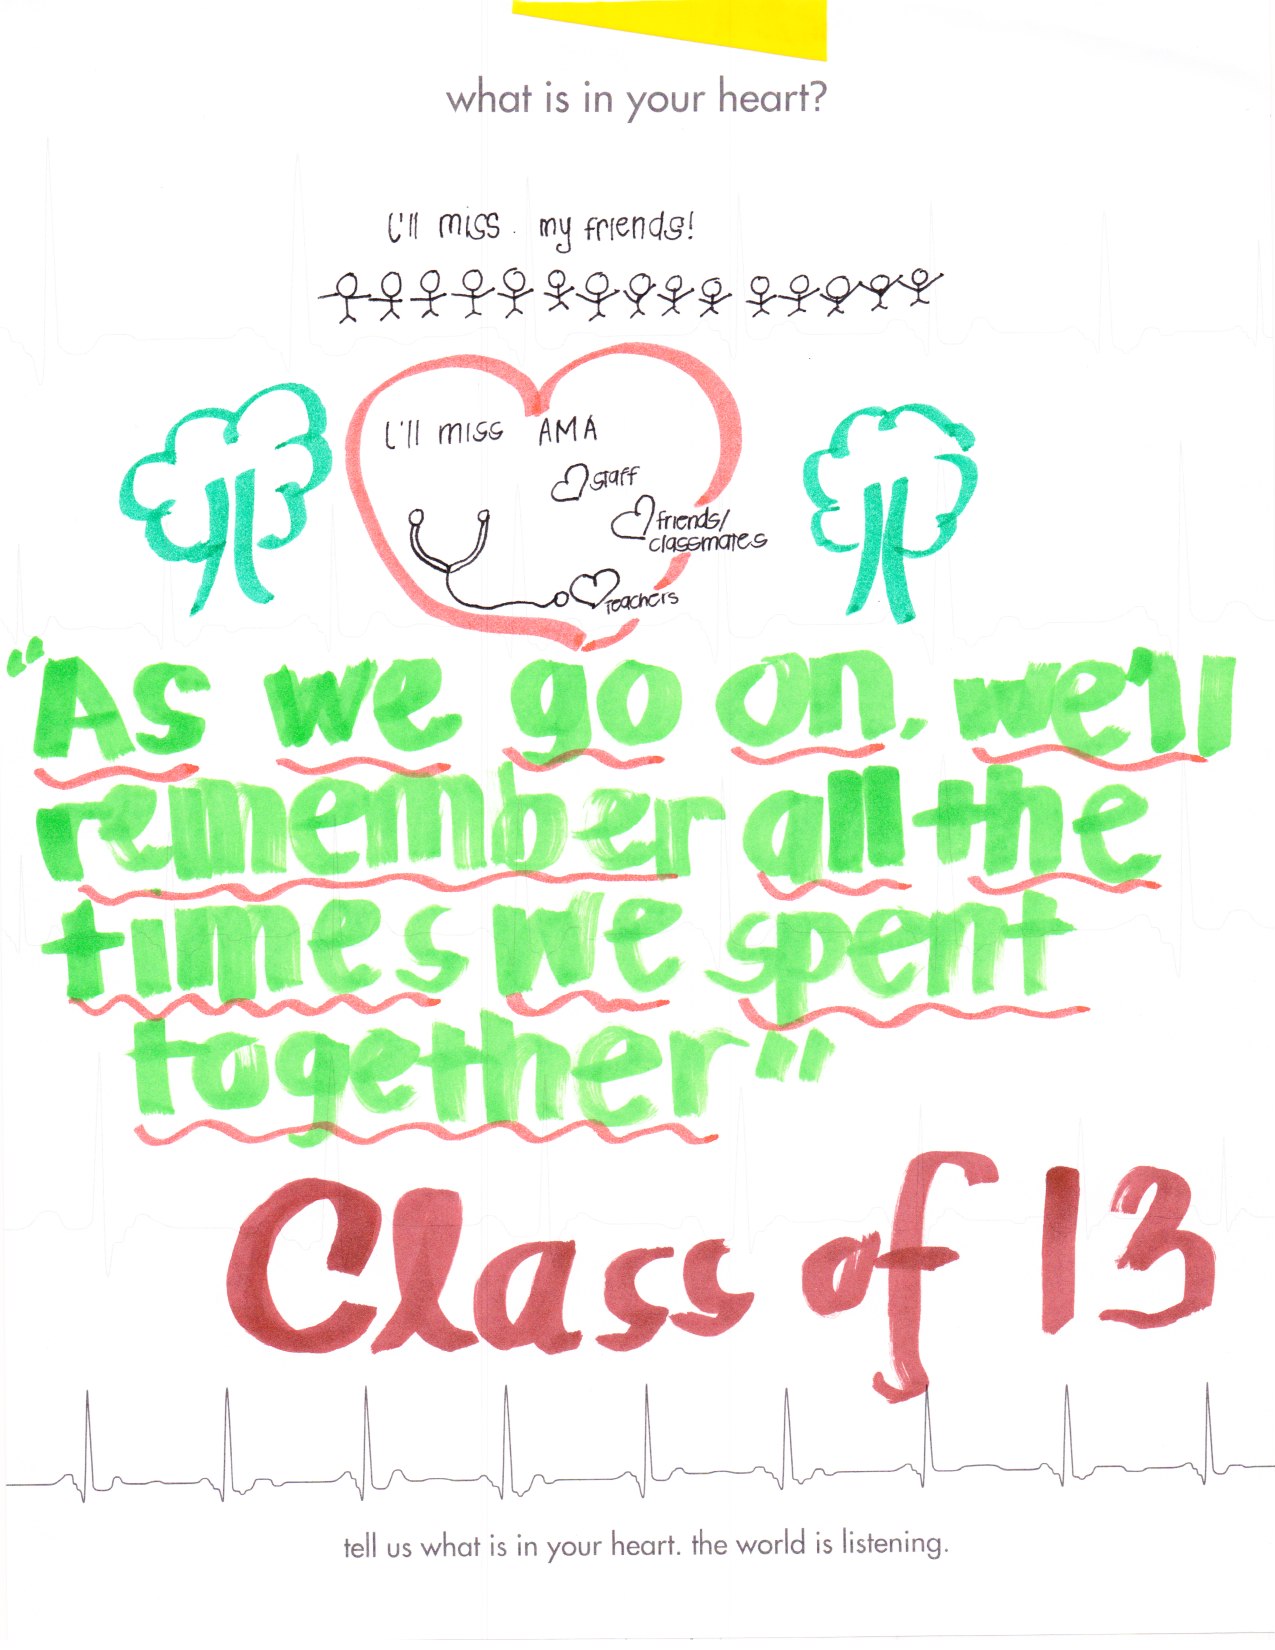 what is in your heart?
I'll miss my friends!
I'll miss AMA
staff
friends/
classmates
teachers
"As we go on, we'll
remember all the
times we spent
together"
Class of 13
tell us what is in your heart. the world is listening.